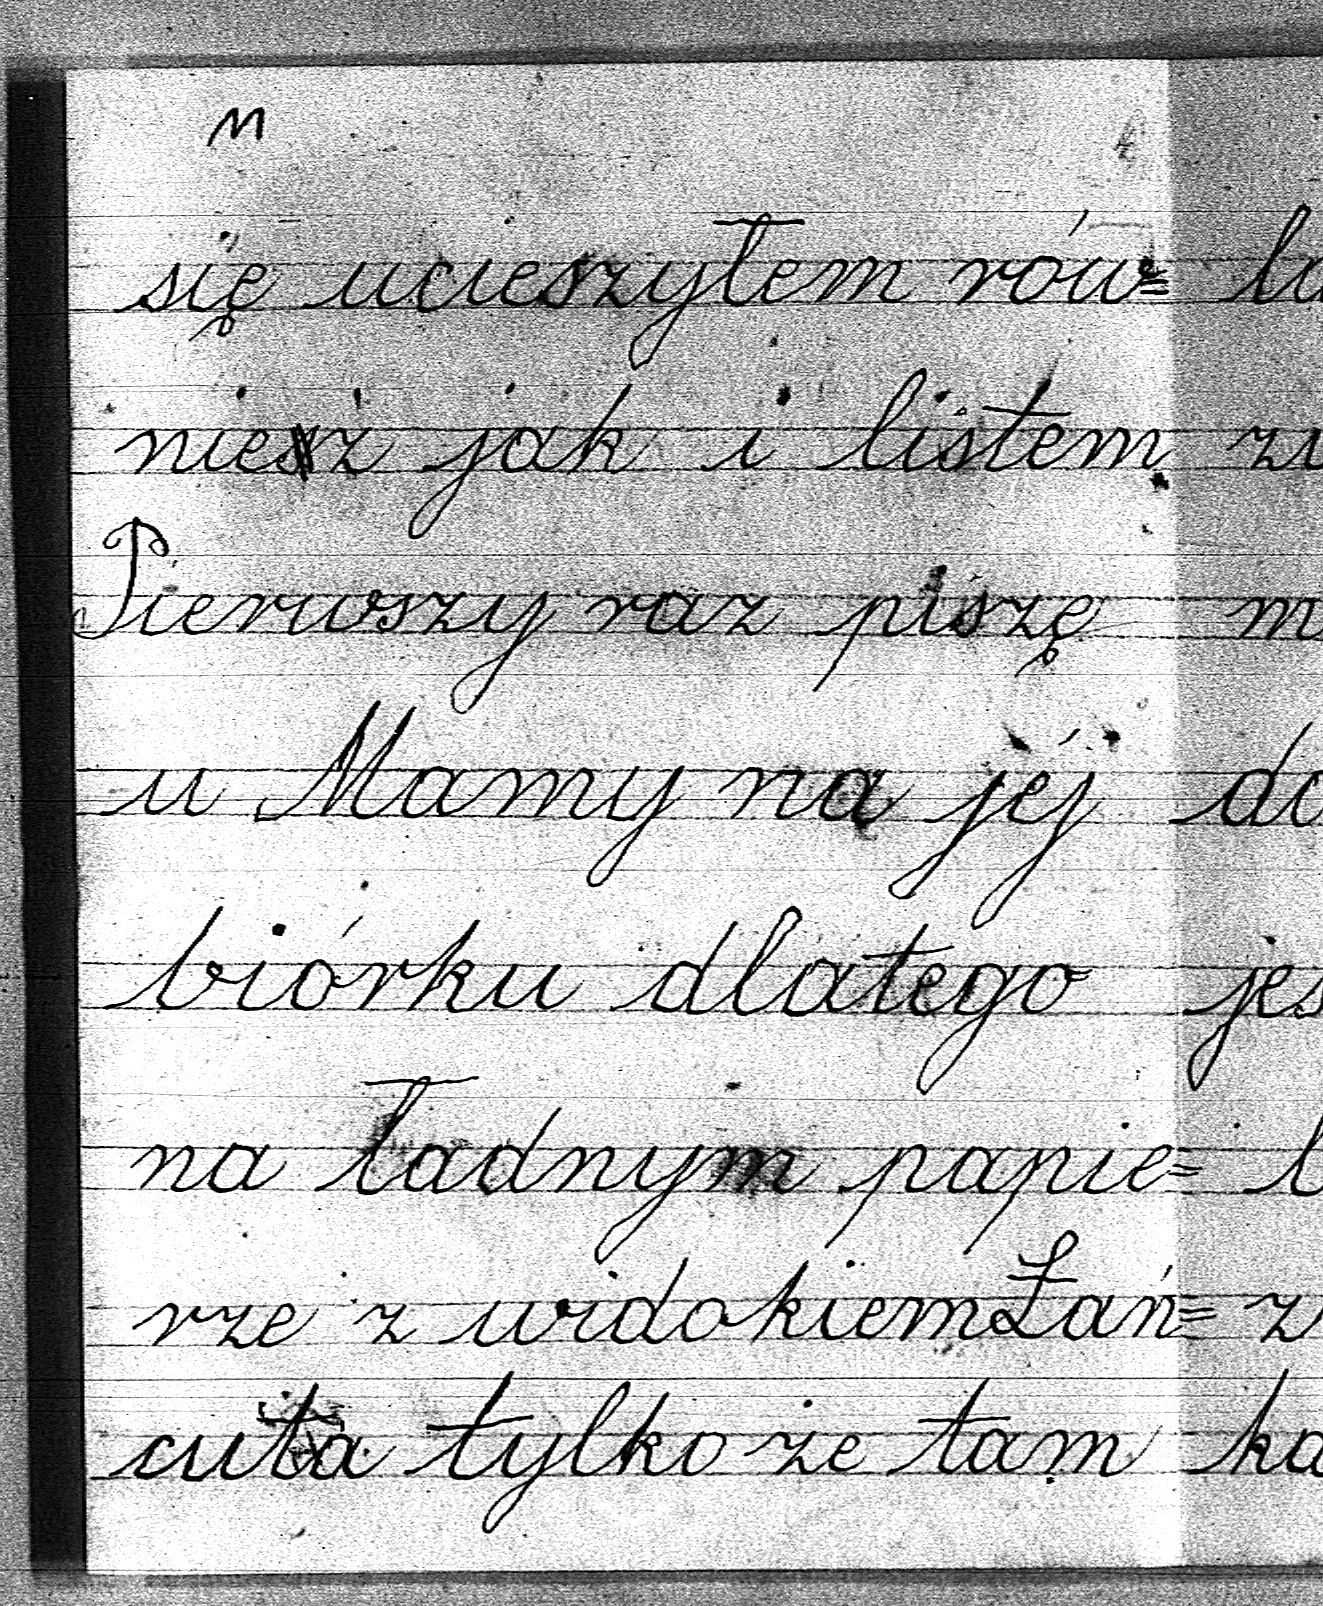 się ucieszyłem rów=
nież jak i listem.
Pierwszy raz piszę
u Mamy na jéj
biórku dlatego
na ładnym papie=
rze z widokiem Łań=
cuta tylko że tam